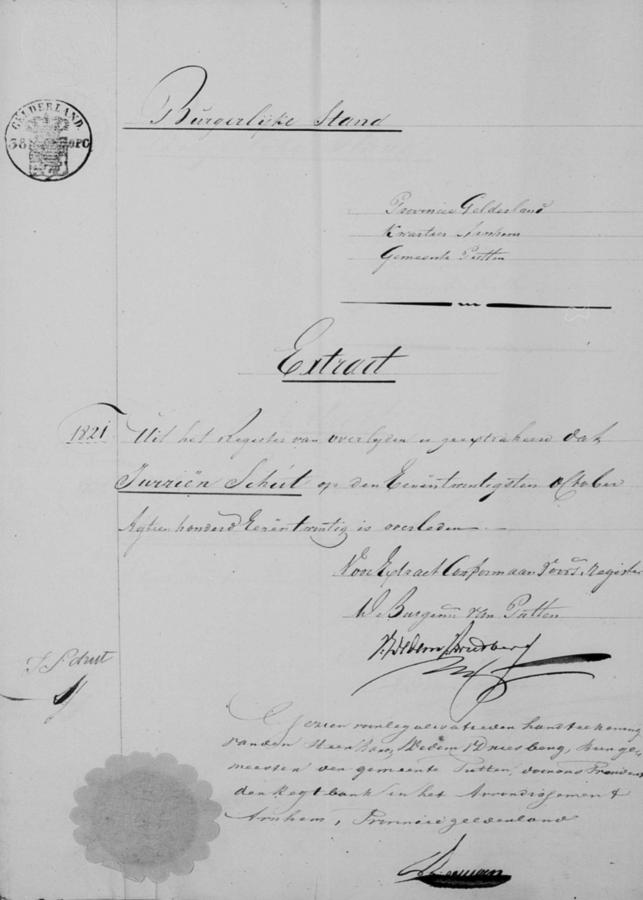 GELDERLAND.
38 OPC
Burgerlyke Stand
Provincie Gelderland
Kwartier Arnhem
Gemeente Putten
Extract
1821. Uit het Register van overlyden is geextraheerd dat
Jurriën Schut op den Eenentwintigsten October
Agtien honderd Eenentwintig is overleden
Voor Extract Conform aan voors. Register
De Burgem van Putten
J Schut
Gezien van de handteekening
van den Heer burge-
meester der gemeente Putten, door ons President
der Regtbank in het Arrondissement
Arnhem, Provincie gelderland